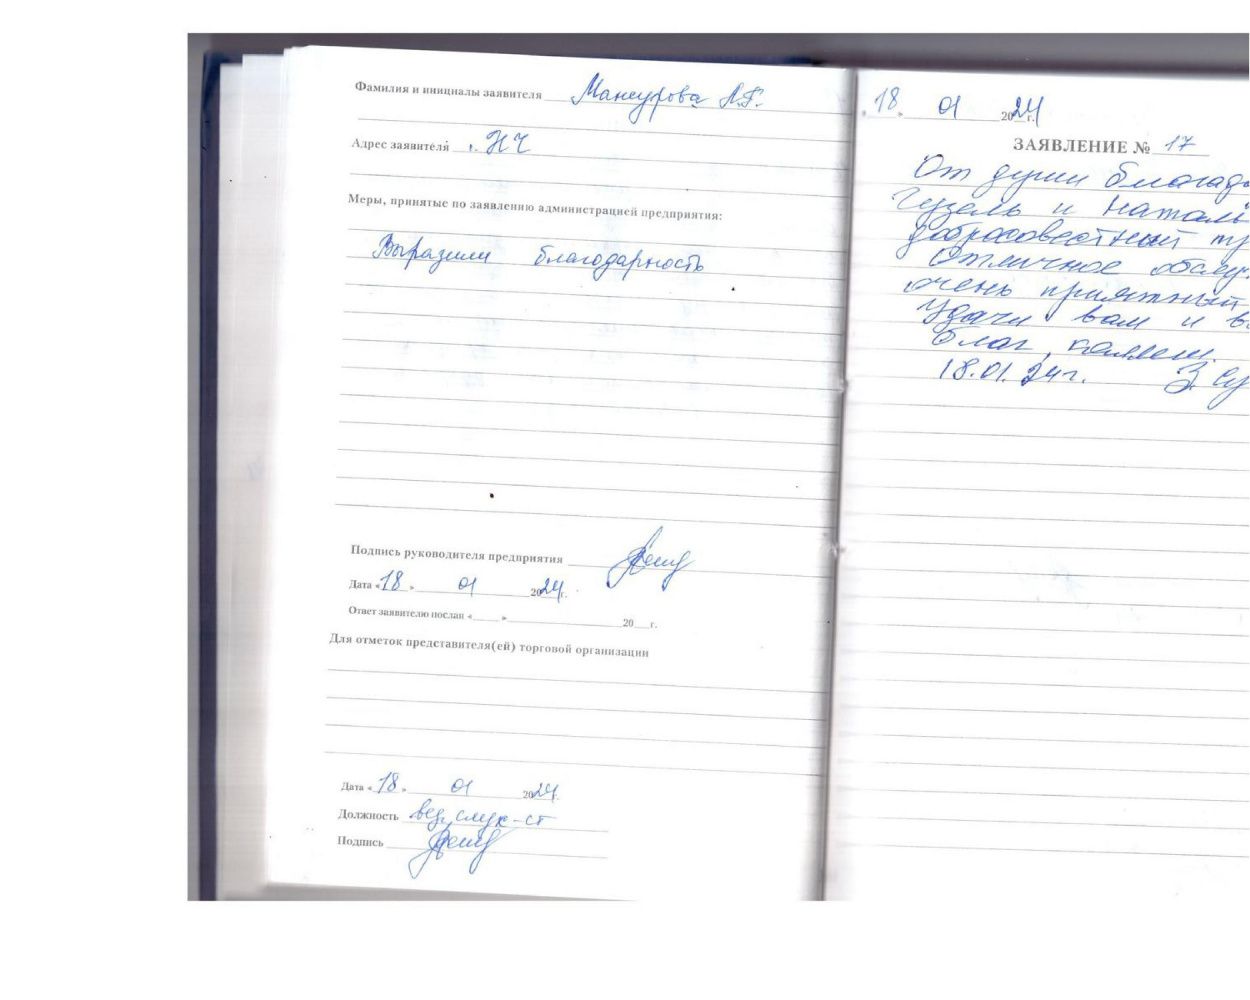 Фамилия и инициалы заявителя Мансурова Л.Г.
Адрес заявителя г. НЧ
Меры, принятые по заявлению администрацией предприятия:
Выразили благодарность
Подпись руководителя предприятия
Дата «18» 01 2024г.
Ответ заявителю послан «____» ____ 20__г.
Для отметок представителя(ей) торговой организации
Дата «18» 01 2024г.
Должность вед.
Подпись
«18» 01 2024г.
ЗАЯВЛЕНИЕ № 17
От души благода
Гузель и Наталь
добросовестный тр
Отличное обслу
очень приятный
Удачи вам и в
благ,
18.01.24г. З.